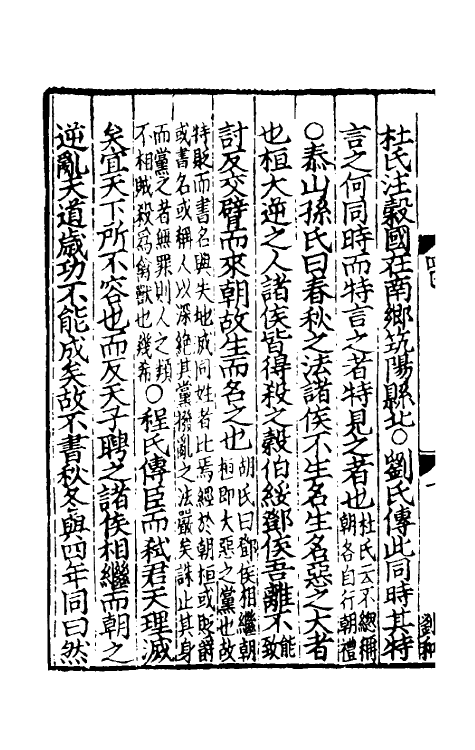 杜氏注穀國在南鄉筑陽縣北○劉氏傳此同時其特
言之何同時而特言之者特見之者也杜氏云不緫稱
朝各自行朝禮
○泰山孫氏曰春秋之法諸侯不生名生名惡之大者
也桓大逆之人諸侯皆得殺之穀伯綏鄧侯吾離不能致
討反交臂而來朝故生而名之也胡氏曰鄧侯相繼朝
桓即大惡之黨也故
特貶而書名與失地滅同姓者比焉經於朝桓或貶爵
或書名或稱人以深絶其黨撥亂之法嚴矣誅止其身
而黨之者無罪則人之類
不相賊殺爲禽獸也幾希○程氏傳臣而弑君天理滅
矣宜天下所不容也而反天子聘之諸侯相繼而朝之
逆亂天道歲功不能成矣故不書秋冬與四年同曰然